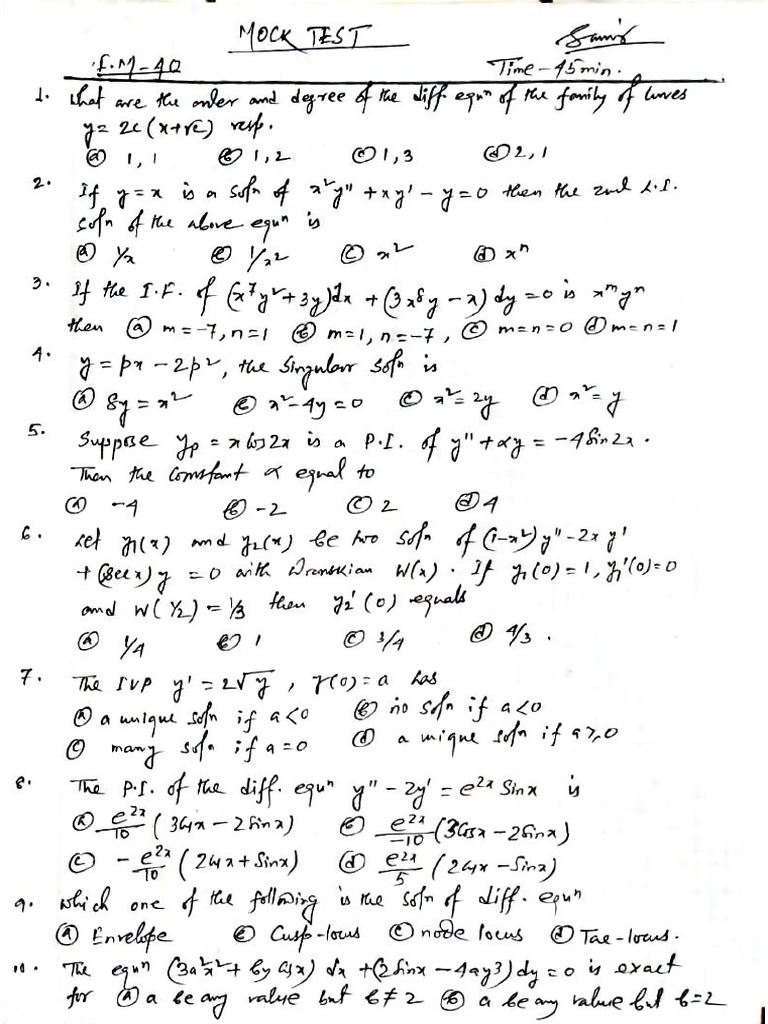 MOCK TEST
F.M-40
Time-45min.
1. What are the order and degree of the diff. equn of the family of curves
y = 2c(x+√c) resp.
(a) 1, 1 (b) 1, 2 (c) 1, 3 (d) 2, 1
2. If y = x is a soln of x²y" + xy' - y = 0 then the 2nd L.I.
soln of the above equn is
(a) 1/x (b) 1/x² (c) x² (d) xⁿ
3. If the I.F. of (x⁷y²+3y)dx + (3x⁸y - x)dy = 0 is xᵐyⁿ
then (a) m=-7, n=1 (b) m=1, n=-7, (c) m=n=0 (d) m=n=1
4. y = px - 2p², the singular soln is
(a) 8y = x² (b) x²-4y=0 (c) x²=2y (d) x²=y
5. Suppose yp = x cos2x is a P.I. of y" + αy = -4 Sin2x.
Then the constant α equal to
(a) -4 (b) -2 (c) 2 (d) 4
6. Let y₁(x) and y₂(x) be two soln of (1-x²)y" - 2x y'
+ (Secx)y = 0 with Wronskian W(x). If y₁(0) = 1, y₁'(0)=0
and W(1/2) = 1/3 then y₂'(0) equals
(a) 1/4 (b) 1 (c) 3/4 (d) 4/3.
7. The IVP y' = 2√y, y(0) = a has
(a) a unique soln if a<0 (b) no soln if a<0
(c) many soln if a=0 (d) a unique soln if a≥0
8. The P.I. of the diff. equn y" - 2y' = e²ˣ Sinx is
(a) e²ˣ/10 (3Cosx - 2Sinx) (b) e²ˣ/-10 (3Cosx - 2Sinx)
(c) - e²ˣ/10 (2Cosx + Sinx) (d) e²ˣ/5 (2Cosx - Sinx)
9. which one of the following is the soln of diff. equn
(a) Envelope (b) Cusp-locus (c) node locus (d) Tac-locus.
10. The equn (3a²x² + by Cosx) dx + (2 Sinx - 4ay³) dy = 0 is exact
for (a) a be any value but b≠2 (b) a be any value but b=2